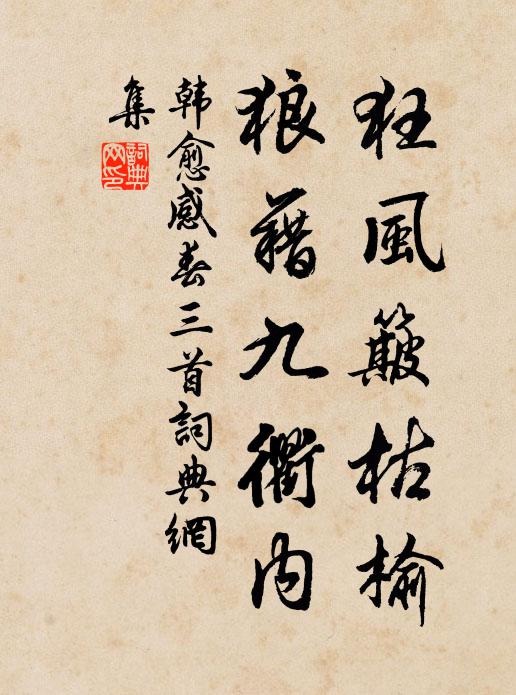 狂風簸枯榆
狼藉九衢內
韓愈感春三首詞典網
集
詞典
网印